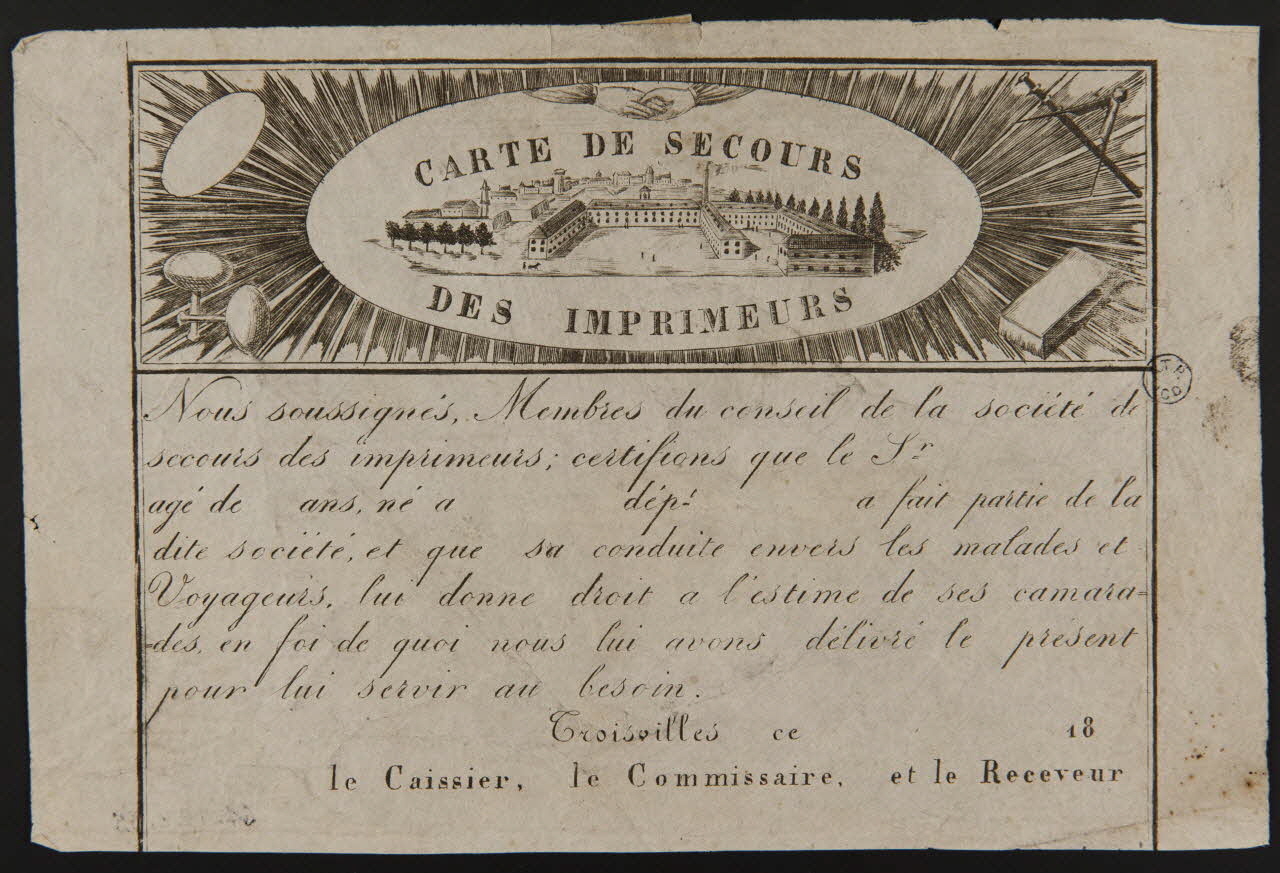 CARTE DE SECOURS
DES IMPRIMEURS
Nous soussignés, Membres du conseil de la société de
secours des imprimeurs; certifions que le Sr.
agé de ans, né a dépt. a fait partie de la
dite société, et que sa conduite envers les malades et
Voyageurs, lui donne droit a l'estime de ses camara=
=des, en foi de quoi nous lui avons délivré le présent
pour lui servir au besoin.
Troisvilles ce 18
le Caissier, le Commissaire, et le Receveur